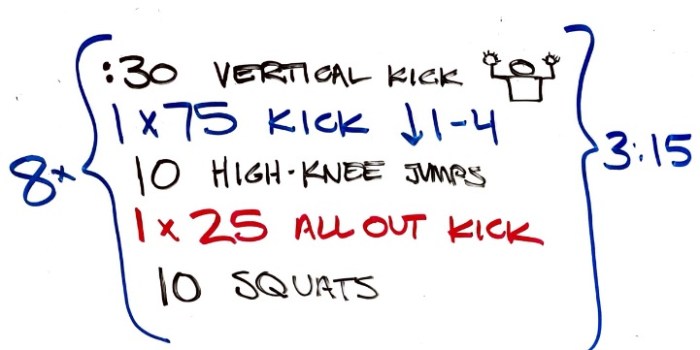 :30 VERTICAL KICK
1 x 75 KICK ↓1-4
8x
10 HIGH-KNEE JUMPS
3:15
1 x 25 ALL OUT KICK
10 SQUATS